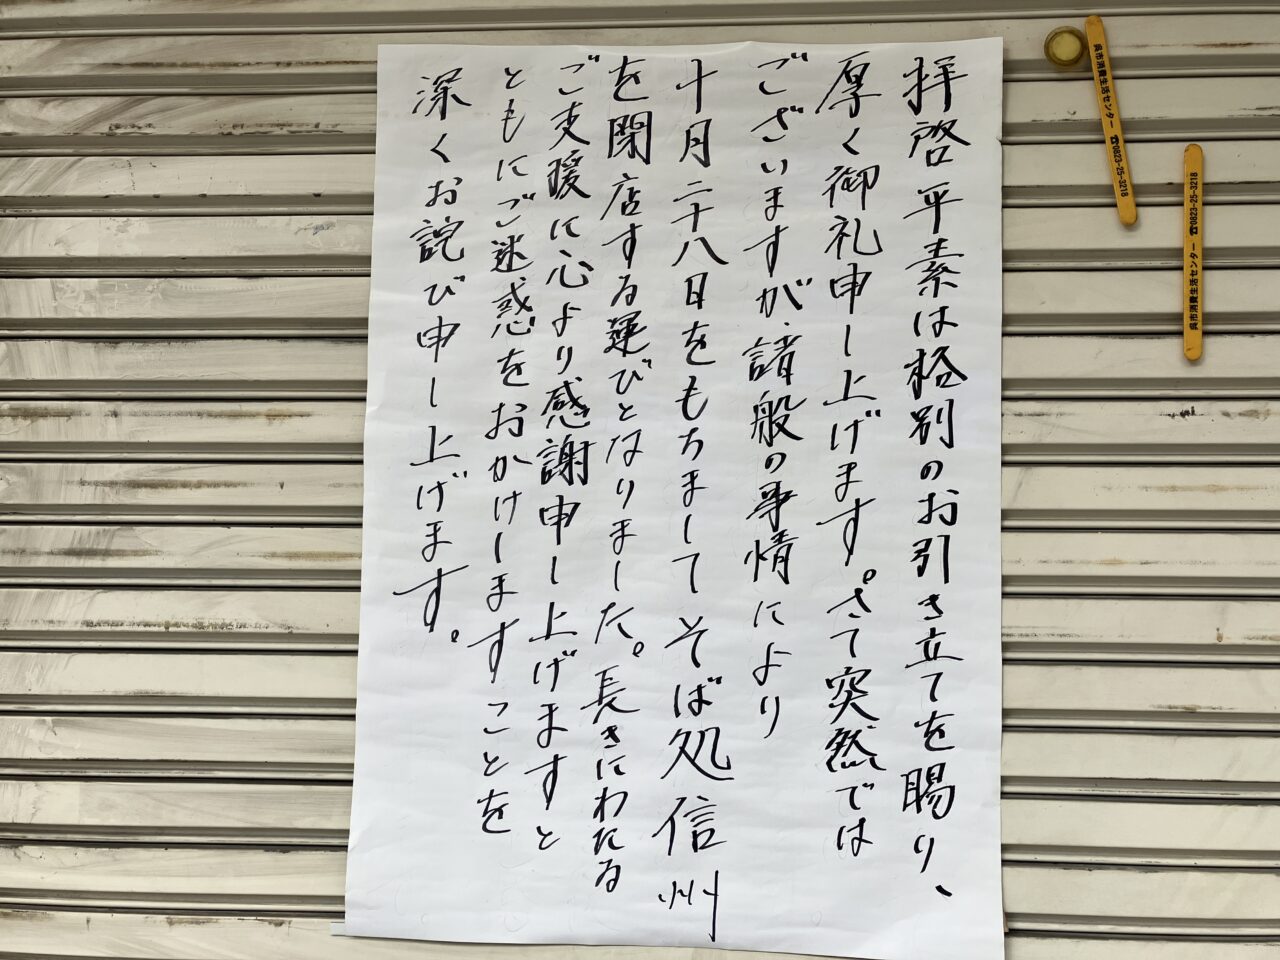 拝啓 平素は格別のお引き立てを賜り、
厚く御礼申し上げます。さて突然では
ございますが、諸般の事情により
十月二十八日をもちましてそば処 信州
を閉店する運びとなりました。長きにわたる
ご支援に心より感謝申し上げますと
ともにご迷惑をおかけしますことを
深くお詫び申し上げます。
呉市消費生活センター ☎0823-25-3218
呉市消費生活センター ☎0823-25-3218